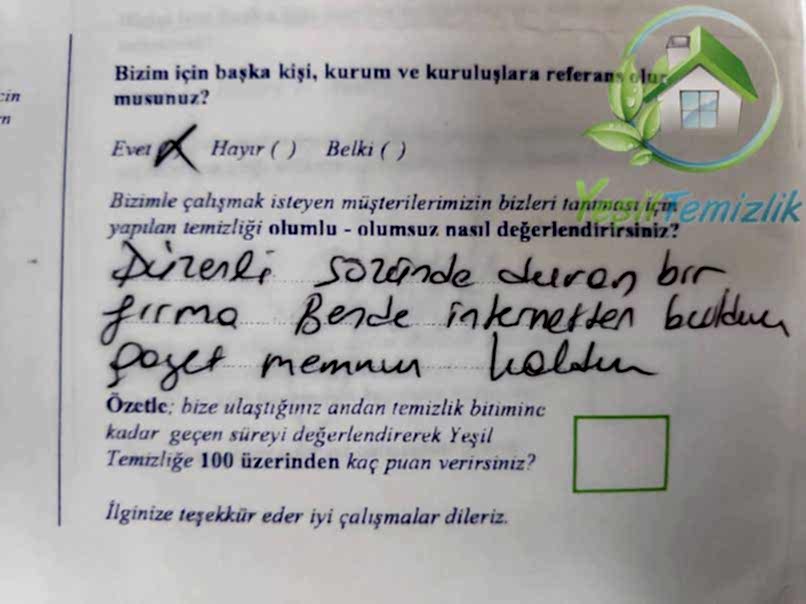 Bizim için başka kişi, kurum ve kuruluşlara referans olur
musunuz?
Evet (X) Hayır ( ) Belki ( )
Bizimle çalışmak isteyen müşterilerimizin bizleri tanıması için
yapılan temizliği olumlu - olumsuz nasıl değerlendirirsiniz?
Düzenli sözünde duran bir
firma Bende internetten buldum
gayet memnun kaldım
Özetle; bize ulaştığınız andan temizlik bitimine
kadar geçen süreyi değerlendirerek Yeşil
Temizliğe 100 üzerinden kaç puan verirsiniz?
İlginize teşekkür eder iyi çalışmalar dileriz.
YeşilTemizlik